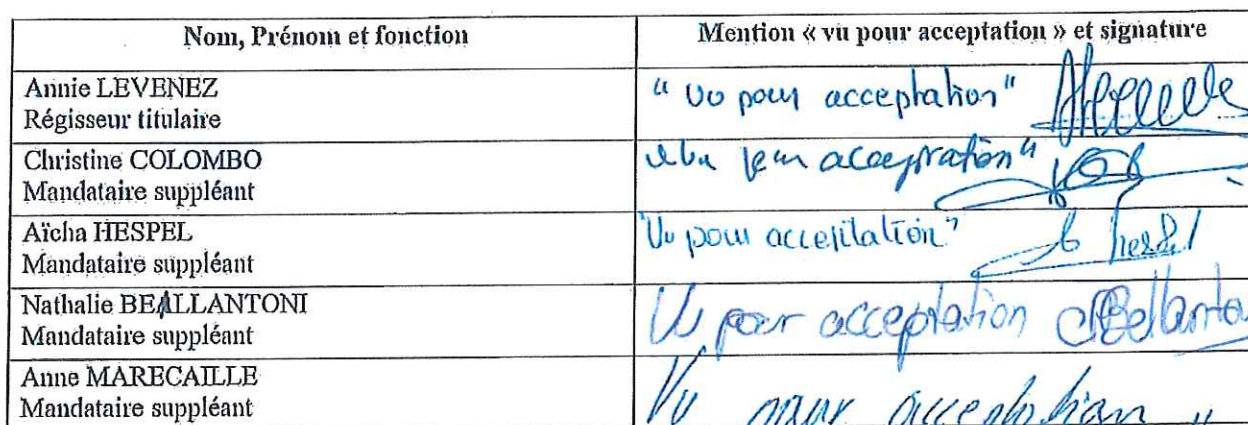 Nom, Prénom et fonction
Mention « vu pour acceptation » et signature
Annie LEVENEZ
Régisseur titulaire
" Vu pour acceptation "
Christine COLOMBO
Mandataire suppléant
" Vu pour acceptation "
Aïcha HESPEL
Mandataire suppléant
" Vu pour acceptation "
Hespel
Nathalie BEALLANTONI
Mandataire suppléant
Vu pour acceptation
Anne MARECAILLE
Mandataire suppléant
Vu pour acceptation "